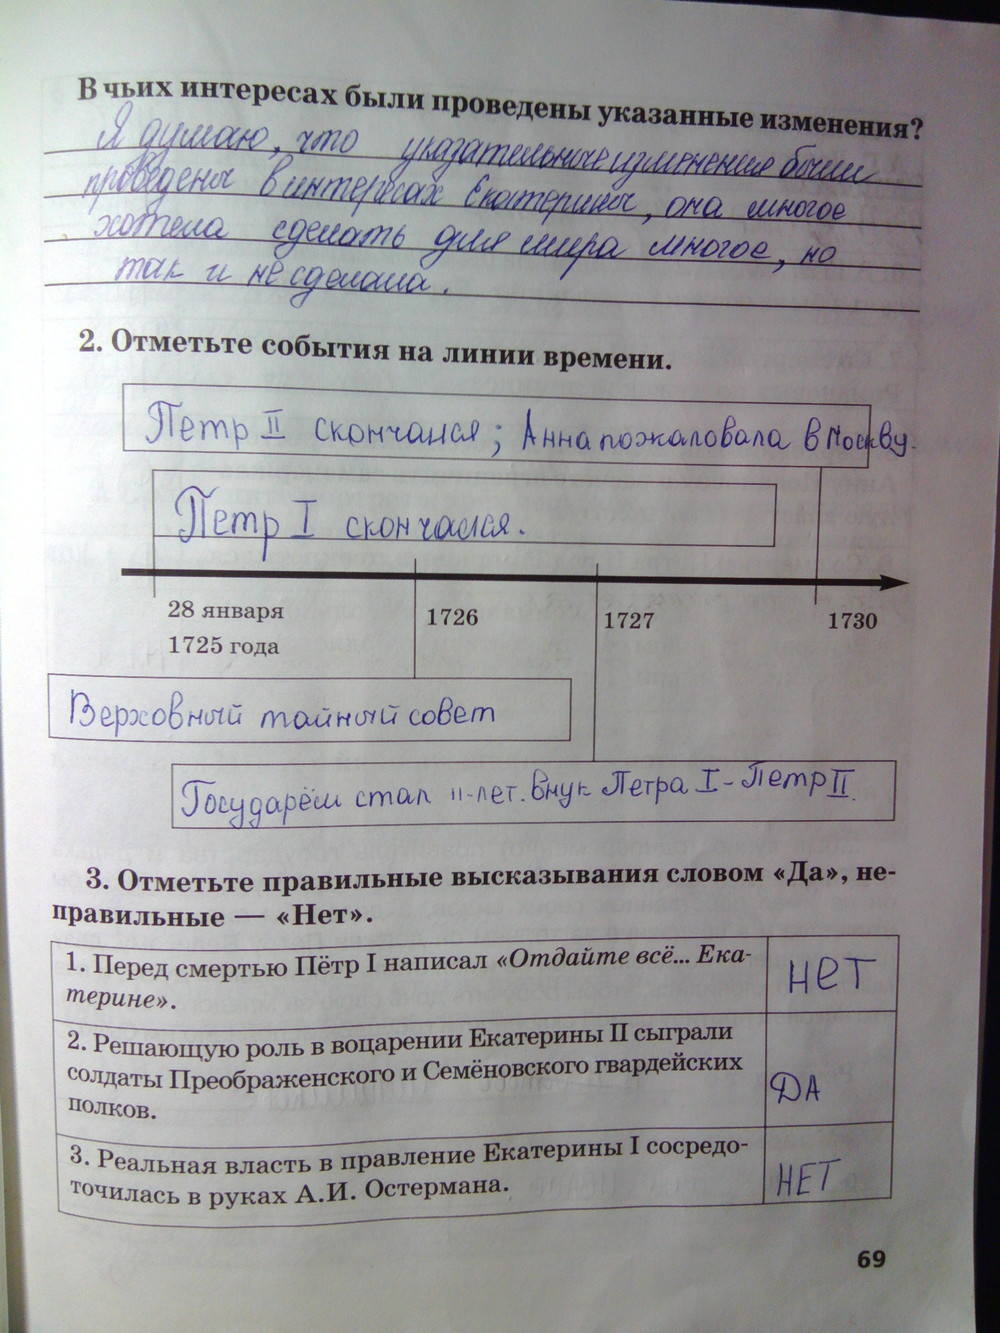 В чьих интересах были проведены указанные изменения?
Я думаю, что указательные изменения были
проведены в интересах Екатерины, она многое
хотела сделать для мира многое, но
так и не сделала.
2. Отметьте события на линии времени.
Петр II скончался; Анна пожаловала в Москву.
Петр I скончался.
28 января
1725 года
1726
1727
1730
Верховный тайный совет
Государем стал 11-лет. внук Петра I - Петр II.
3. Отметьте правильные высказывания словом «Да», не-
правильные — «Нет».
1. Перед смертью Пётр I написал «Отдайте всё... Ека-
терине».
НЕТ
2. Решающую роль в воцарении Екатерины II сыграли
солдаты Преображенского и Семёновского гвардейских
полков.
ДА
3. Реальная власть в правление Екатерины I сосредо-
точилась в руках А.И. Остермана.
НЕТ
69